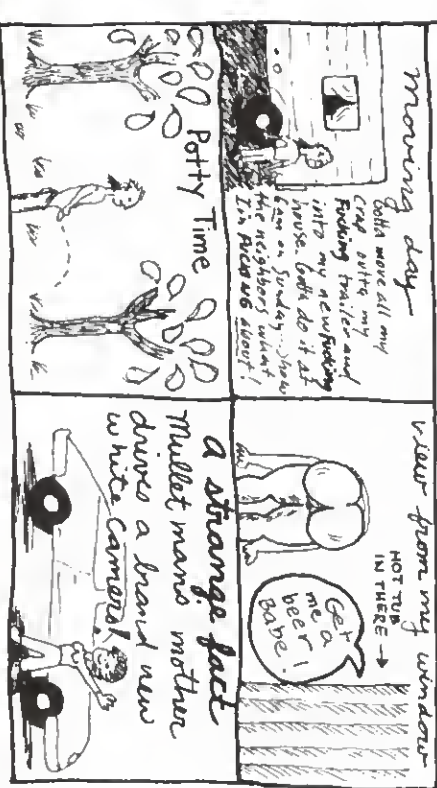 moving day
Gotta move all my
crap outta my
Fucking trailer and
into my new Fucking
house. Gotta do it at
6am on Sunday...show
the neighbors what
I'm FUCKING about!
view from my window
HOT TUB
IN THERE →
Get
me a
beer
Babe!
Potty Time
a strange fact
Mullet mans mother
drives a brand new
white Camero!